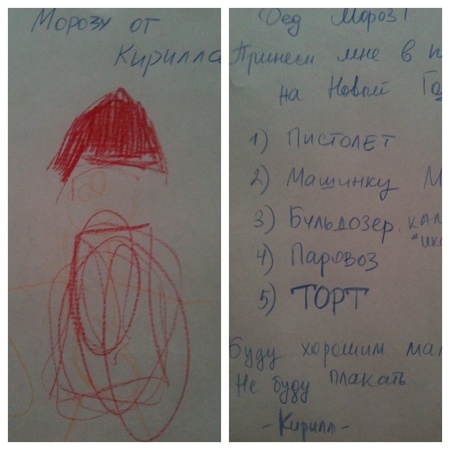 Морозу от
Кирилла
Дед Мороз!
Принеси мне в п
на Новый Го
1) Пистолет
2) Машинку М
3) Бульдозер, кам
4) Паровоз
5) ТОРТ
Буду хорошим мал
Не буду плакать
- Кирилл -